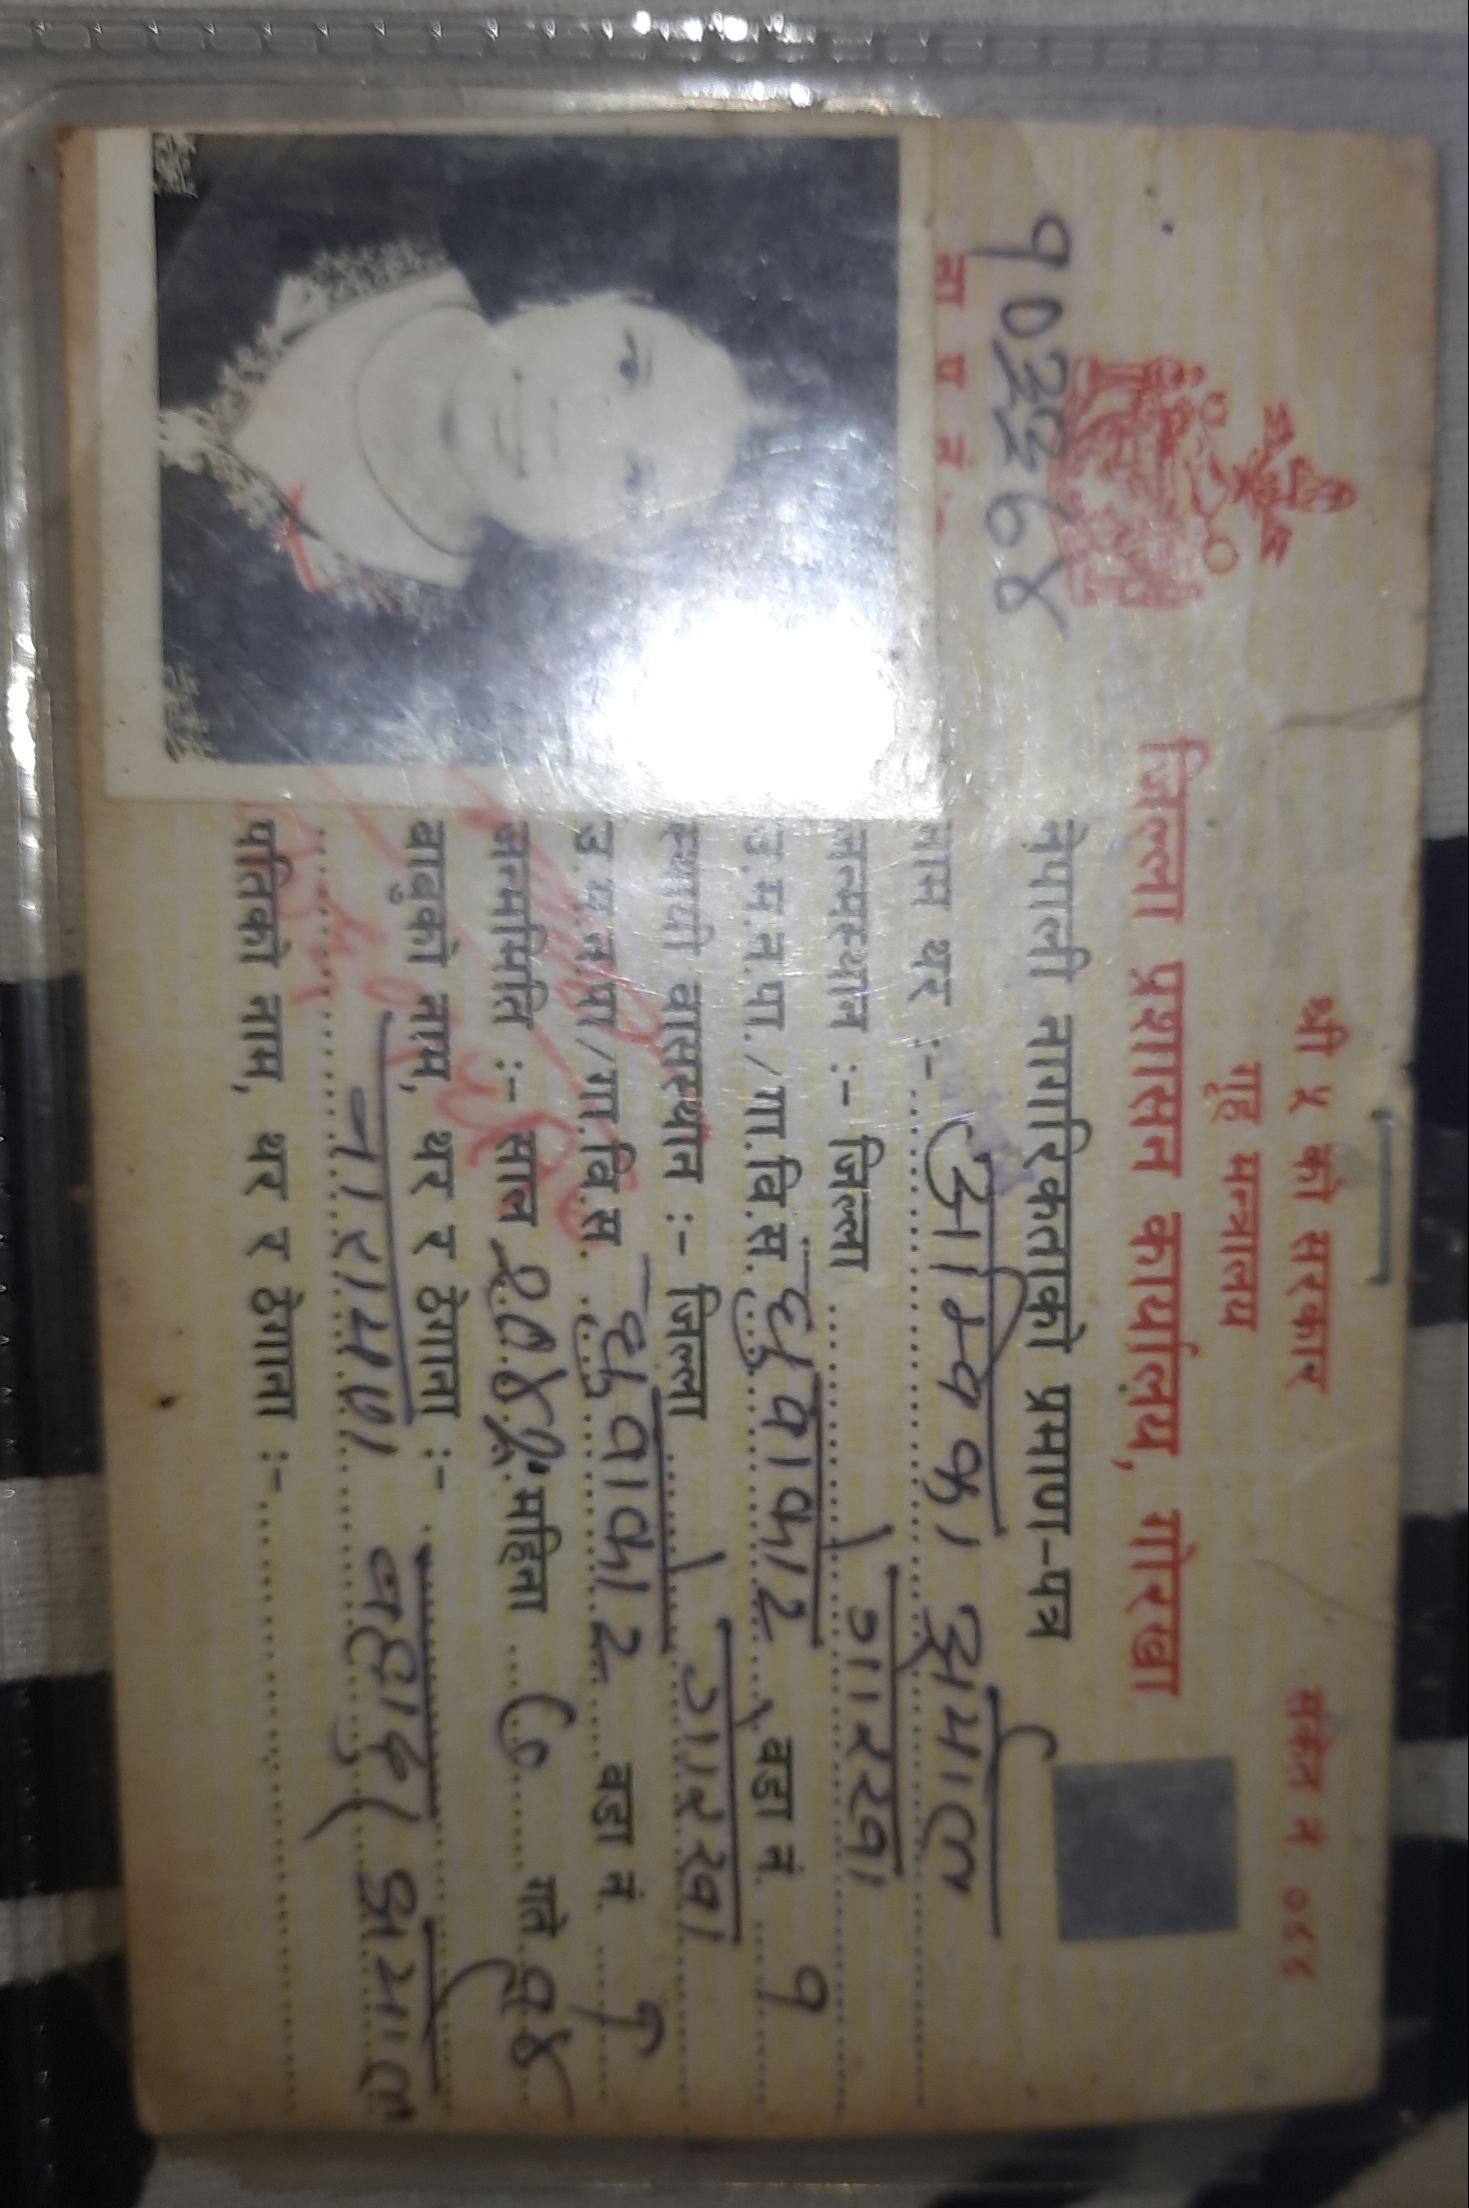 श्री ५ को सरकार
गृह मन्त्रालय
संकेत नं. ०५५
जिल्ला प्रशासन कार्यालय, गोरखा
नेपाली नागरिकताको प्रमाण-पत्र
ना प्र नं
नाम थर :- अम्बिका अर्माल
जन्मस्थान :- जिल्ला गोरखा
उ.म.न.पा./गा.वि.स. धुवाकोट वडा नं. १
स्थायी वासस्थान :- जिल्ला गोरखा
उ.म.न.पा/गा.वि.स. धुवाकोट वडा नं. १
जन्ममिति :- साल महिना गते
बाबुको नाम, थर र ठेगाना :-
नारायण बहादुर अर्माल
पतिको नाम, थर र ठेगाना :-